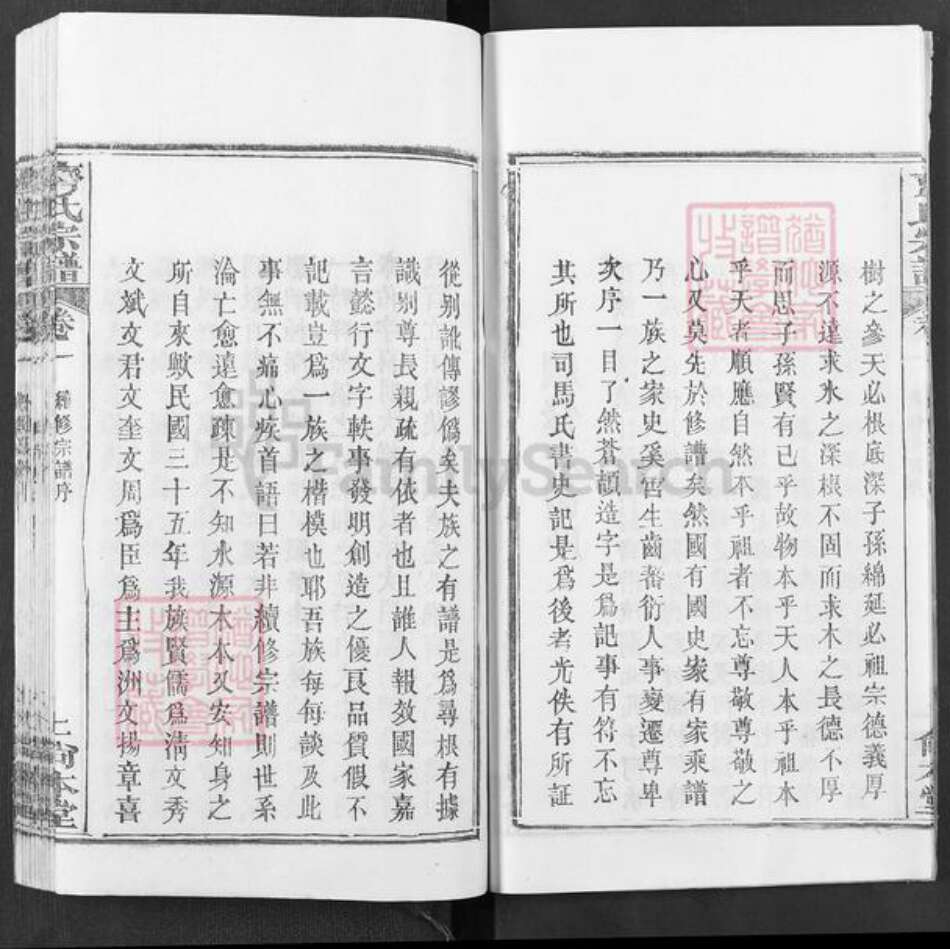 樹之參天必根底深子孫綿延必祖宗德義厚
源不達求水之深根不固而求木之長德不厚
而思子孫賢有已乎故物本乎天人本乎祖本
乎天者順應自然本乎祖者不忘尊敬尊敬之
心又莫先於修譜矣然國有國史家有家乘譜
乃一族之家史奚啻生齒蕃衍人事變遷尊卑
次序一目了然蒼頡造字是為記事有符不忘
其所也司馬氏書史記是為後者光佚有所証
從别訛傳謬僞矣夫族之有譜是爲尋根有據
識别尊長親疏有依者也且誰人報效國家嘉
言懿行文字軼事發明創造之優良品質假不
記載豈爲一族之楷模也耶吾族每每談及此
事無不痛心疾首語曰若非續修宗譜則世系
淪亡愈遠愈疎是不知水源木本又安知身之
所自來歟民國三十五年我族賢儒爲清文秀
文斌文君文奎文周爲臣爲主爲洲文揚章喜
氏宗譜
卷一
修宗譜序
上
尚本堂
FamilySearch